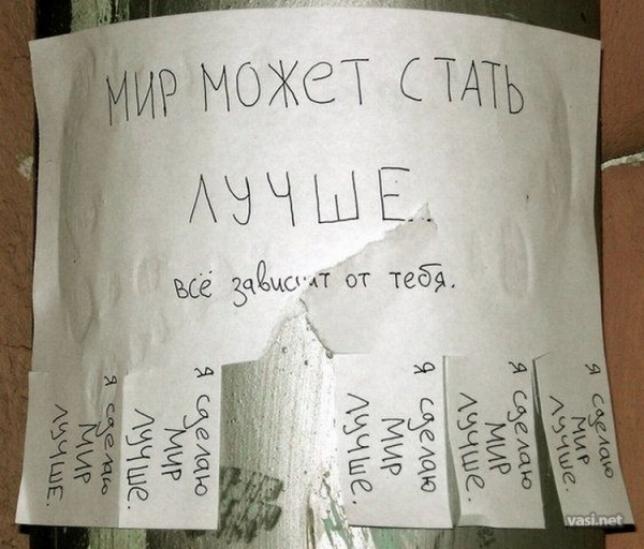 МИР МОЖЕТ СТАТЬ
ЛУЧШЕ..
всё зависит от тебя.
я сделаю
МИР
ЛУЧШЕ.
я сделаю
МИР
ЛУЧШЕ.
я сделаю
МИР
ЛУЧШЕ.
я сделаю
МИР
ЛУЧШЕ.
я сделаю
МИР
ЛУЧШЕ.
vasi.net